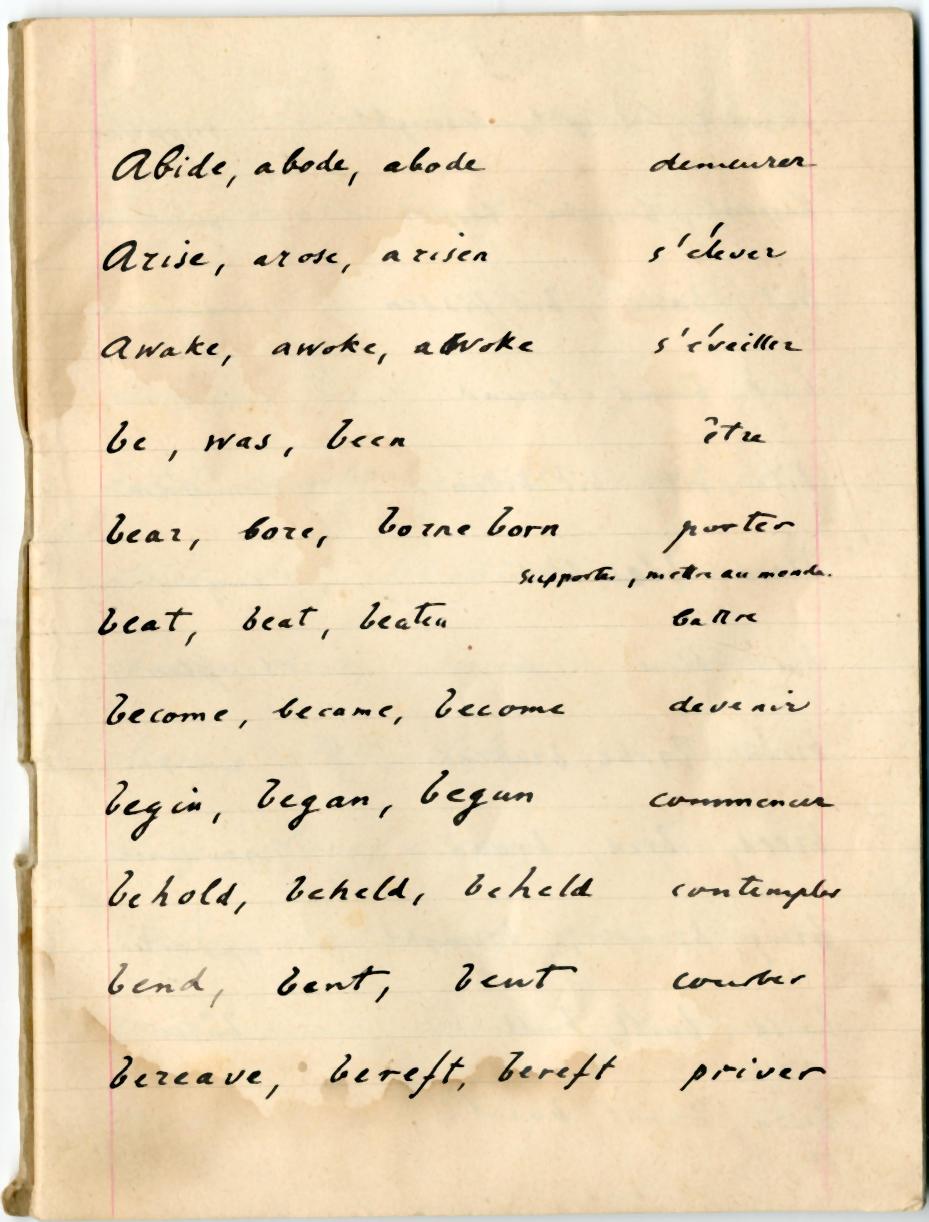 Abide, abode, abode demeurer
Arise, arose, arisen s'élever
Awake, awoke, awoke s'éveiller
be, was, been être
bear, bore, borne born porter
supporter, mettre au monde.
beat, beat, beaten battre
become, became, become devenir
begin, began, begun commencer
behold, beheld, beheld contempler
bend, bent, bent courber
bereave, bereft, bereft priver